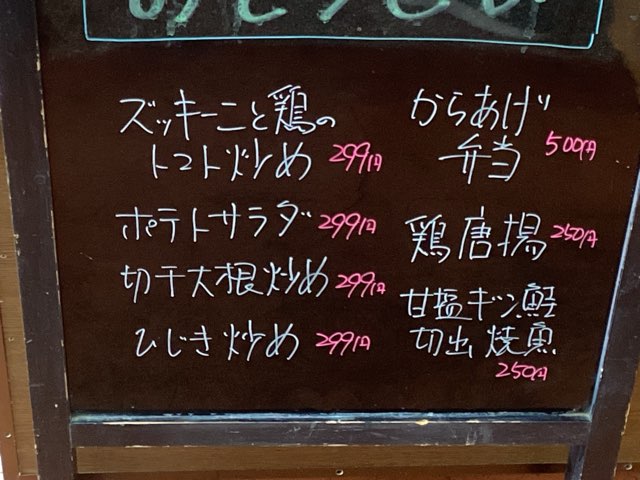 ズッキーニと鶏の
トマト炒め 299円
ポテトサラダ 299円
切干大根炒め 299円
ひじき炒め 299円
からあげ
弁当 500円
鶏唐揚 250円
甘塩ギン鮭
切出焼魚
250円